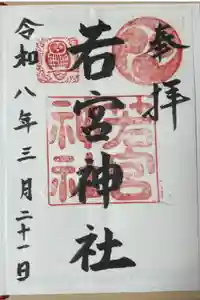 奉拝
若宮神社
令和八年三月二十一日
若宮
神社